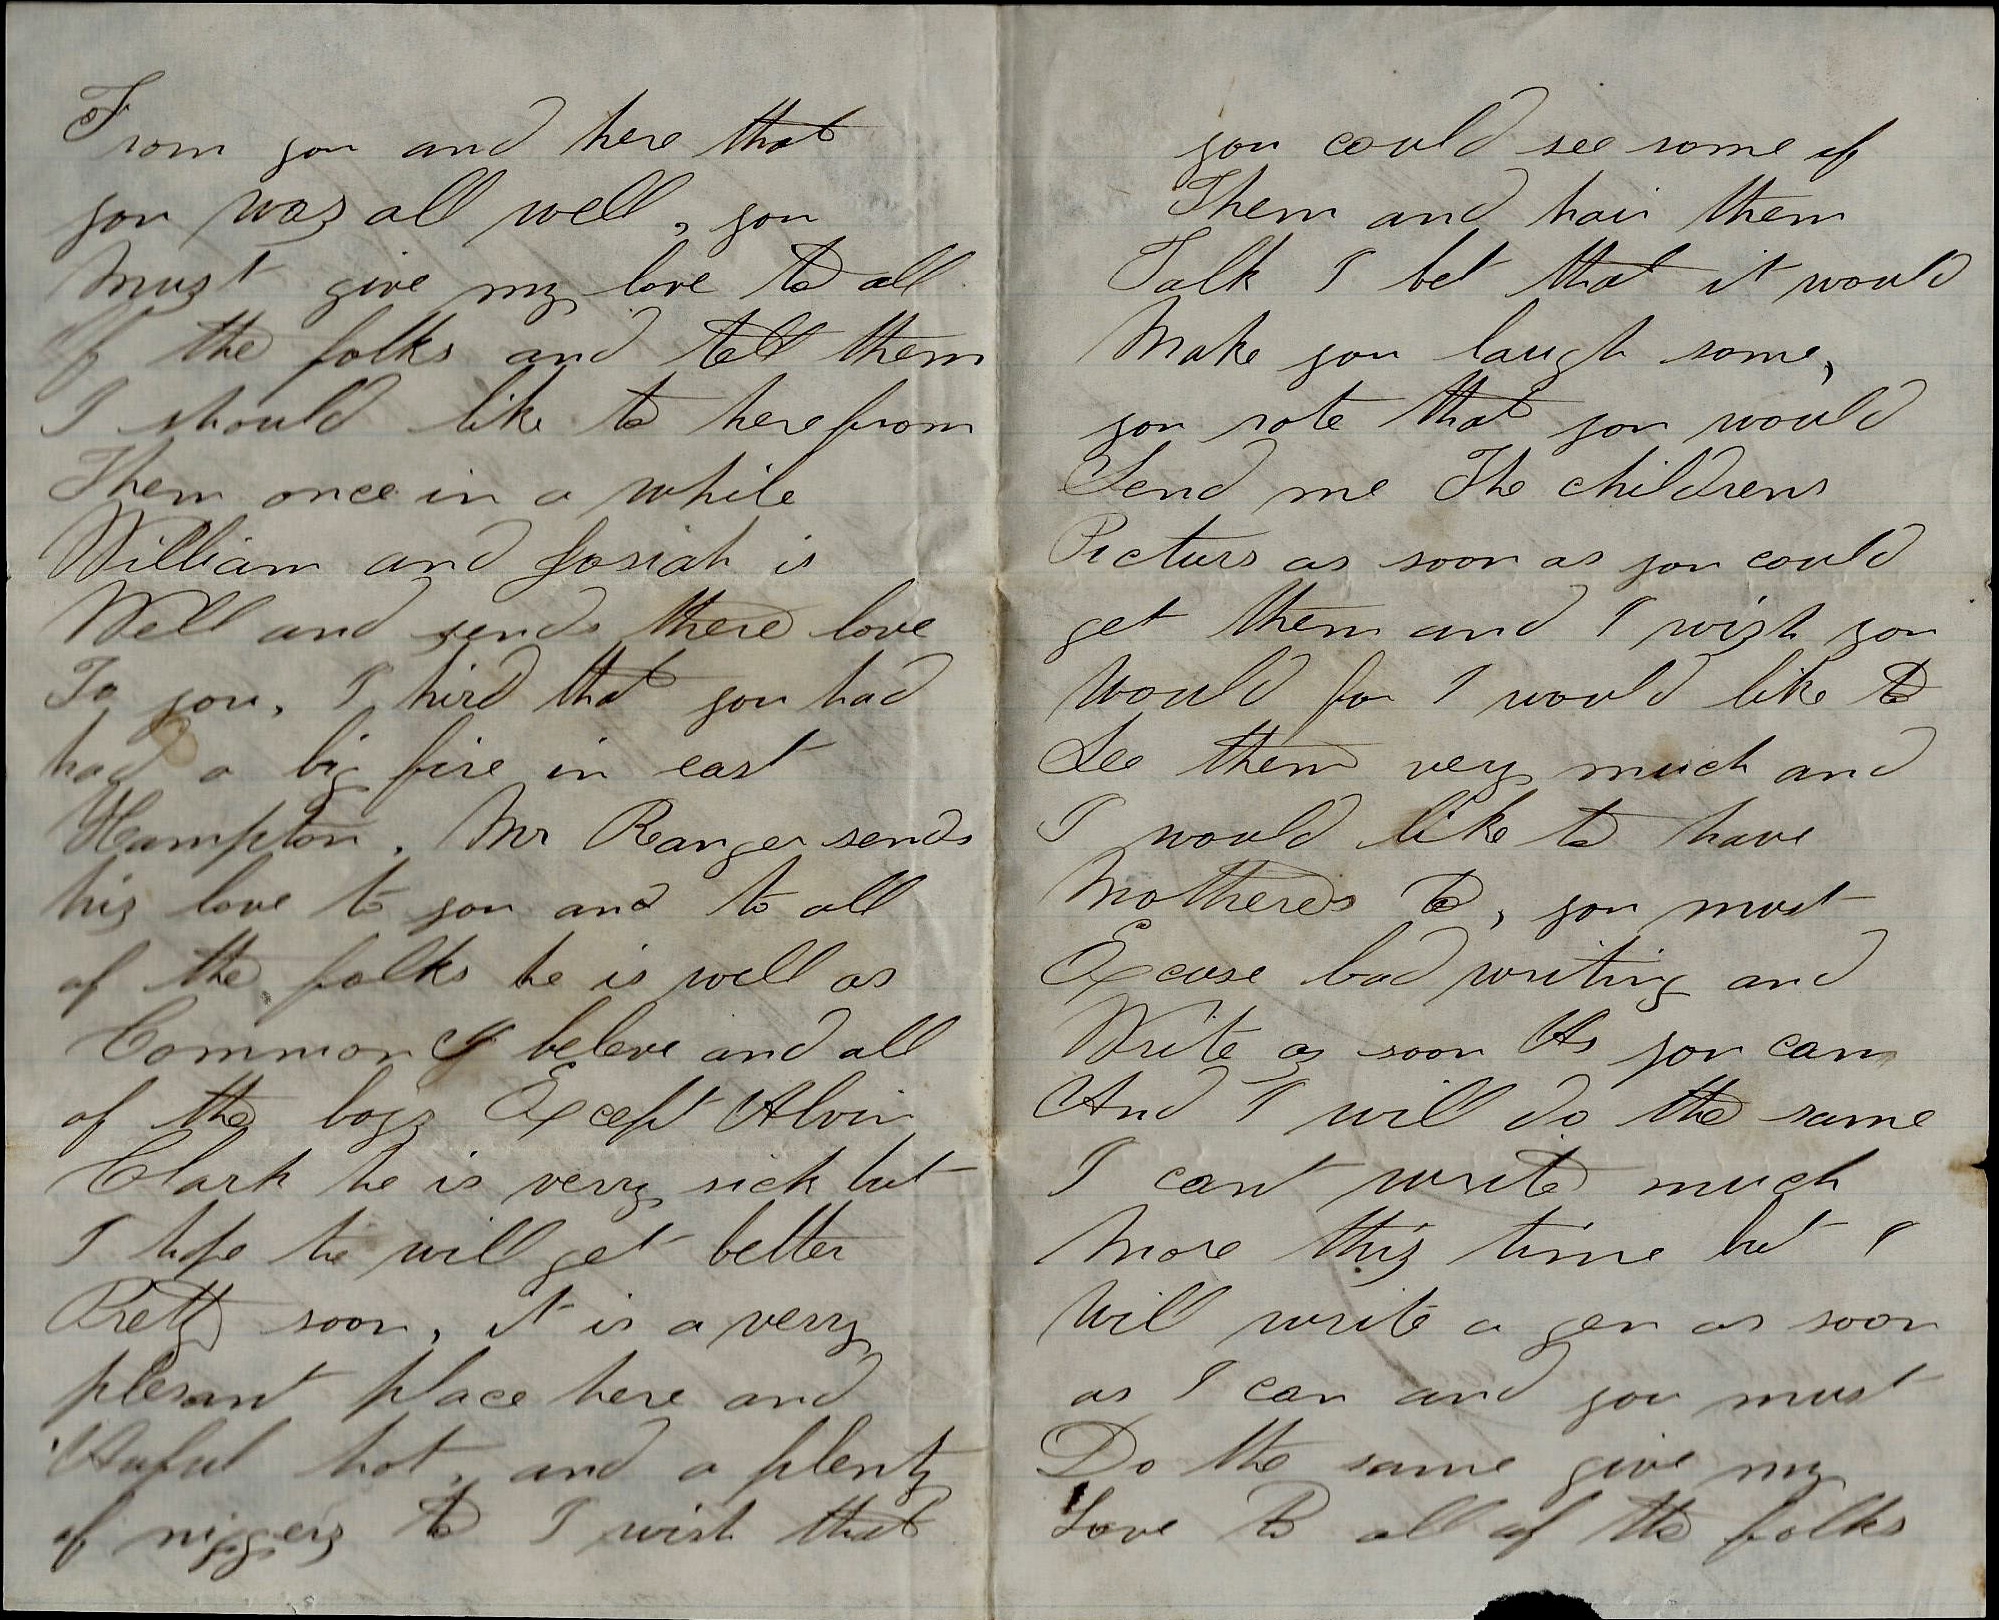 From you and here that
you was all well, you
Must give my love to all
of the folks and tell them
I should like to here from
Them once in a while
William and Josiah is
Well and sends there love
To you, I hird that you had
had a big fire in east
Hampton. Mr Ranger sends
his love to you and to all
of the folks he is well as
Common I beleve and all
of the boys Except Alvin
Clark he is verry sick but
I hope he will get better
Pretty soon, it is a verry
plesant place here and
Awful hot, and a plenty
of niggers to I wish that
you could see some of
Them and hair them
Talk I bet that it would
Make you laugh some,
you rote that you would
Send me The childrens
Picturs as soon as you could
get them and I wish you
Would for I would like to
See them very much and
I would like to have
Motheres to, you must
Excuse bad writing and
Write as soon As you can
And I will do the same
I cant write much
More this time but I
Will write a gen as soon
as I can and you must
Do the same give my
Love to all of the folks